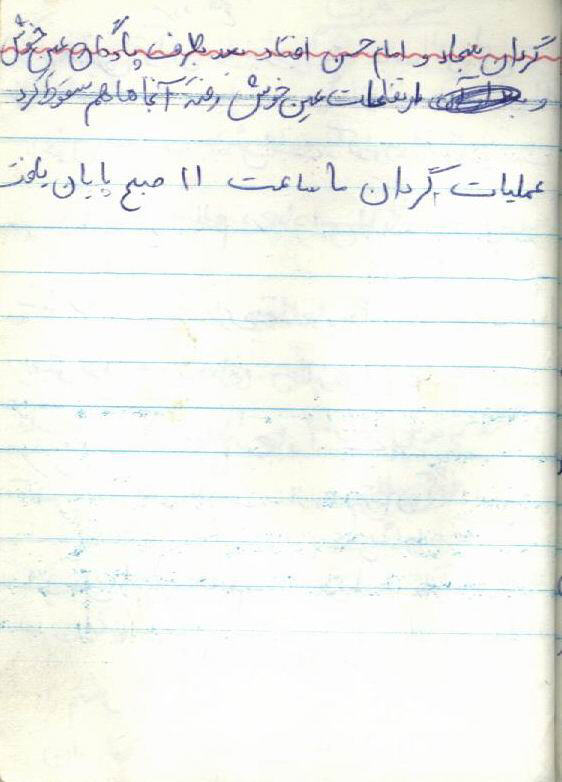 گردان سجاد و امام حسن افتاد بعد بطرف پادگان عین خوش
و ارتفاعات عین خوش رفته آنجا ها هم سقوط کرد
عملیات گردان ما ساعت ۱۱ صبح پایان یافت